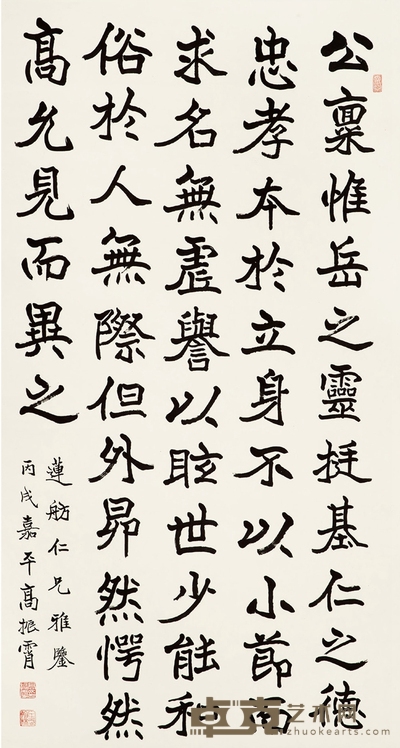 公稟惟岳之靈挺基仁之德
忠孝本於立身不以小節而
求名無虛譽以眩世少能和
俗於人無際但外昂然愕然
高允見而異之
蓮舫仁兄雅鑒
丙戌嘉平高振霄
卓克艺术网
zhuokearts.com